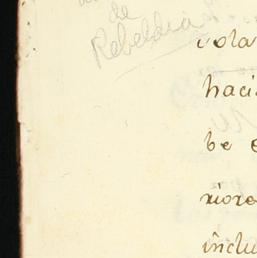 de
Rebeldia
vola
haci
be e
riore
inclu